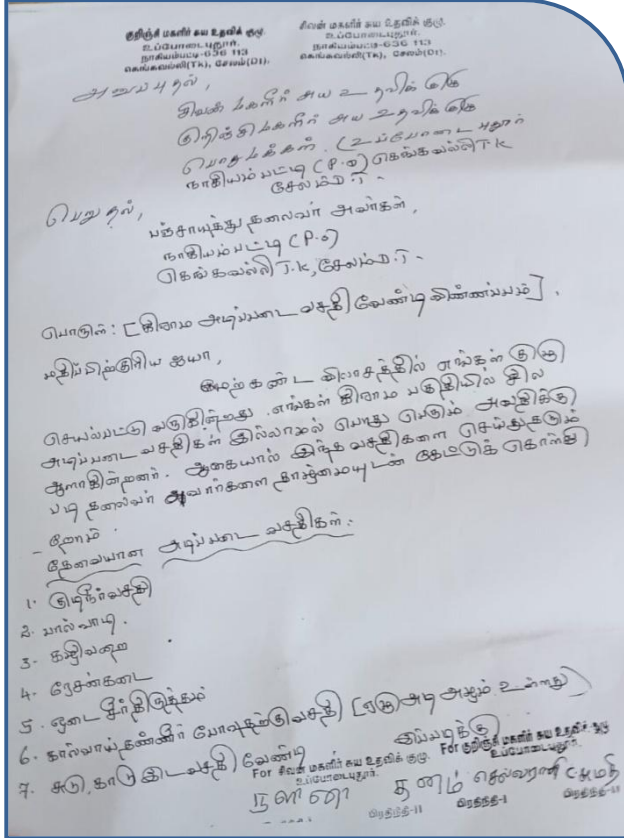 குறிஞ்சி மகளிர் சுய உதவிக் குழு.
உப்போடைபுதூர்.
நாகியம்பட்டி-636 113
கெங்கவல்லி(TK), சேலம்(Dt).
சிவன் மகளிர் சுய உதவிக் குழு.
உப்போடைபுதூர்,
நாகியம்பட்டி-636 113
கெங்கவல்லி(TK), சேலம்(Dt).
அனுப்புதல்,
சிவன் மகளிர் சுய உதவிக் குழு
குறிஞ்சி மகளிர் சுய உதவிக் குழு
பொதுமக்கள். (உப்போடை புதூர்
நாகியம்பட்டி (P.o) கெங்கவல்லி T.K
சேலம் D.T.
பெறுதல்,
பஞ்சாயத்து தலைவர் அவர்கள்,
நாகியம்பட்டி (P.o)
கெங்கவல்லி T.K, சேலம் D.T.
பொருள்: [கிராம அடிப்படை வசதி வேண்டி விண்ணப்பம்].
மதிப்பிற்குரிய ஐயா,
மேற்கண்ட விலாசத்தில் எங்கள் குழு
செயல்பட்டு வருகின்றது. எங்கள் கிராம பகுதியில் சில
அடிப்படை வசதிகள் இல்லாமல் பொது பெரும் அவதிக்கு
ஆளாகின்றனர். ஆகையால் இந்த வசதிகளை செய்து தரும்
படி தலைவர் அவர்களை தாழ்மையுடன் கேட்டுக் கொள்கி
- றோம்.
தேவையான அடிப்படை வசதிகள்:
1. குடிநீர் வசதி
2. பால்வாடி.
3. கழிவறை
4. ரேசன்கடை
5. ஓடை சீர்திருத்தம்
6. கால்வாய் தண்ணீர் போவதற்கு வசதி [ஏழு அடி அழம் உள்ளது]
7. சுடுகாடு இட வசதி வேண்டி
இப்படிக்கு
For சிவன் மகளிர் சுய உதவிக் குழு.
உப்போடைபுதூர்.
For குறிஞ்சி மகளிர் சுய உதவிக் குழு
உப்போடைபுதூர்.
தனம் செல்வராணி C.சுமதி
பிரதிநிதி-II
பிரதிநிதி-I
பிரதிநிதி-II